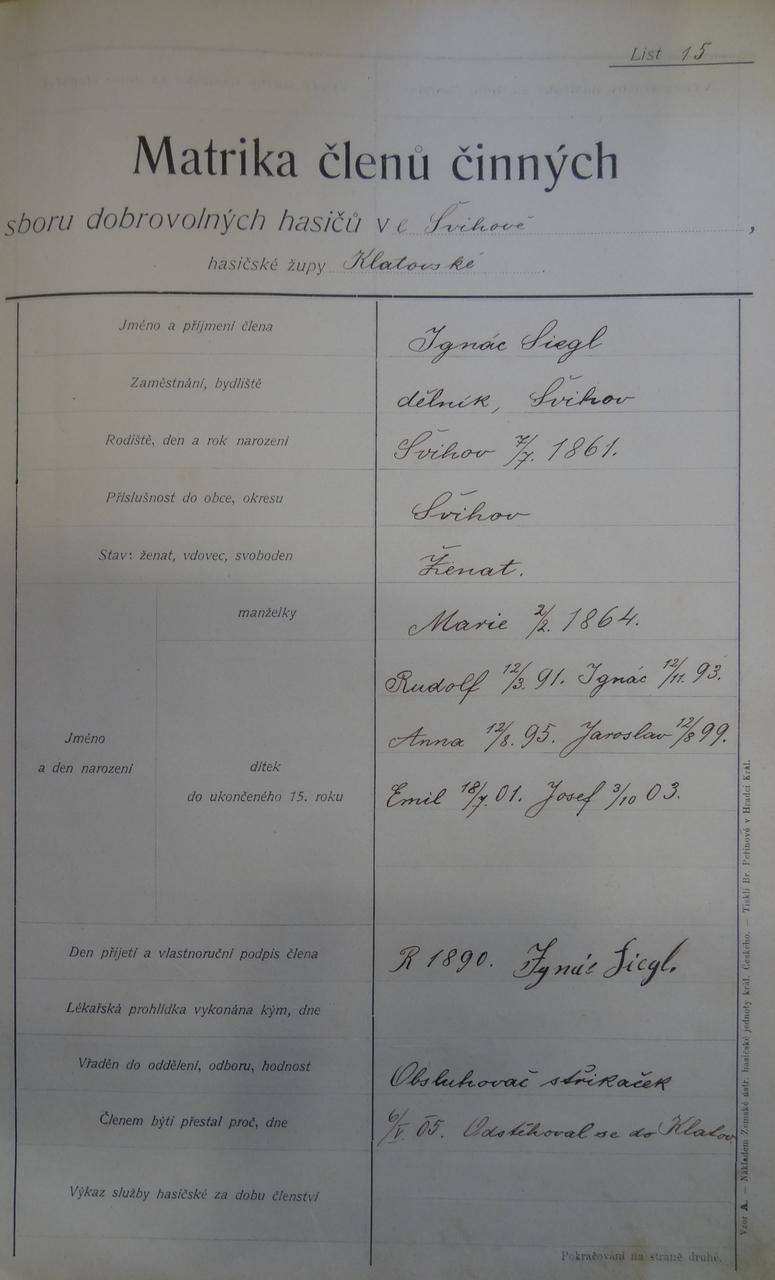 List 15
Matrika členů činných
sboru dobrovolných hasičů ve Švihově,
hasičské župy Klatovské
Jméno a příjmení člena
Ignác Siegl
Zaměstnání, bydliště
dělník, Švihov
Rodiště, den a rok narození
Švihov 7/7. 1861.
Příslušnost do obce, okresu
Švihov
Stav: ženat, vdovec, svoboden
Ženat.
manželky
Marie 2/2. 1864.
Jméno
a den narození
dítek
do ukončeného 15. roku
Rudolf 12/3. 91. Ignác 12/11. 93.
Anna 12/8. 95. Jaroslav 12/8 99.
Emil 18/7. 01. Josef 3/10 03.
Den přijetí a vlastnoruční podpis člena
R 1890. Ignác Siegl.
Lékařská prohlídka vykonána kým, dne
Vřaděn do oddělení, odboru, hodnost
Obsluhovač stříkaček
Členem býti přestal proč, dne
6/V. 05. Odstěhoval se do Klatov
Výkaz služby hasičské za dobu členství
Pokračování na straně druhé.
Vzor A. — Nákladem Zemské ústř. hasičské jednoty král. Českého. — Tiskli Br. Peřinové v Hradci Král.